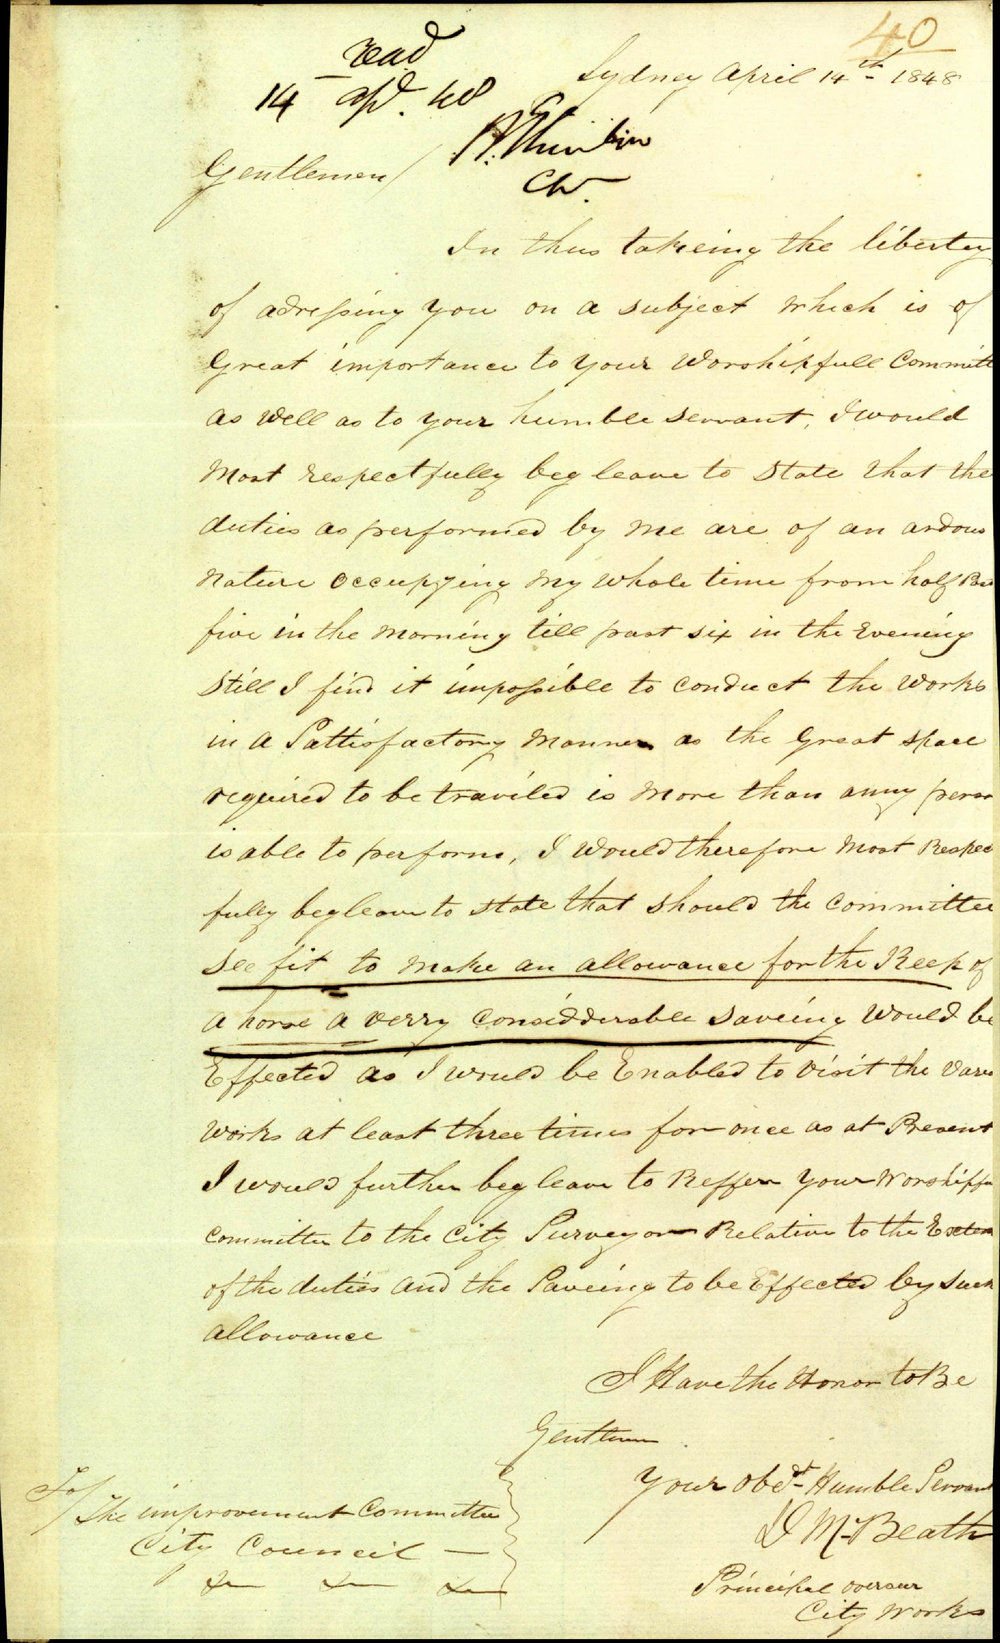 40
read
14 apl. 48
Sydney April 14th 1848
Gentlemen/
In thus takeing the liberty
of adressing you on a subject which is of
Great importance to your Worshipfull Committ
as well as to your humble servant, I would
Most respectfully beg leave to State that the
duties as performed by me are of an ardous
Nature Occupying My whole time from half Pas
five in the Morning till past six in the Evening
Still I find it impossible to conduct the Works
in a Sattisfactory Manner as the Great space
required to be traviled is More than anny perso
is able to perform, I Would therefore Most Respec
fully beg leave to state that should the Committee
See fit to Make an allowance for the Keep of
a horse a verry Considderable Saveing Would be
Effected as I would be Enabled to visit the vario
Works at least three times for once as at Present
I would further beg leave to Reffer Your Worshipfu
Committee to the City Surveyor Relative to the Exten
of the duties and the Saveing to be Effected by Such
allowance
I Have the Honor to Be
Gentlemen
Your Obedt Humble Servant
D McBeath
Principal overseer
City Works
To/
The improvement Committee
City Council